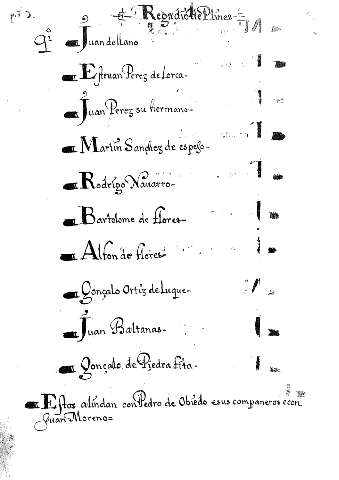 Regadio de Plines
Juan dellano
Esteuan Perez de Lorca
Juan Perez su hermano
Martin Sanchez de espejo
Rodrigo Nauarro
Bartolome de flores
Alfon de flores
Gonçalo Ortiz de Luque
Juan Baltanas
Gonçalo de Piedra fita
Estos alindan con Pedro de Obiedo esus companeros econ
Juan Moreno